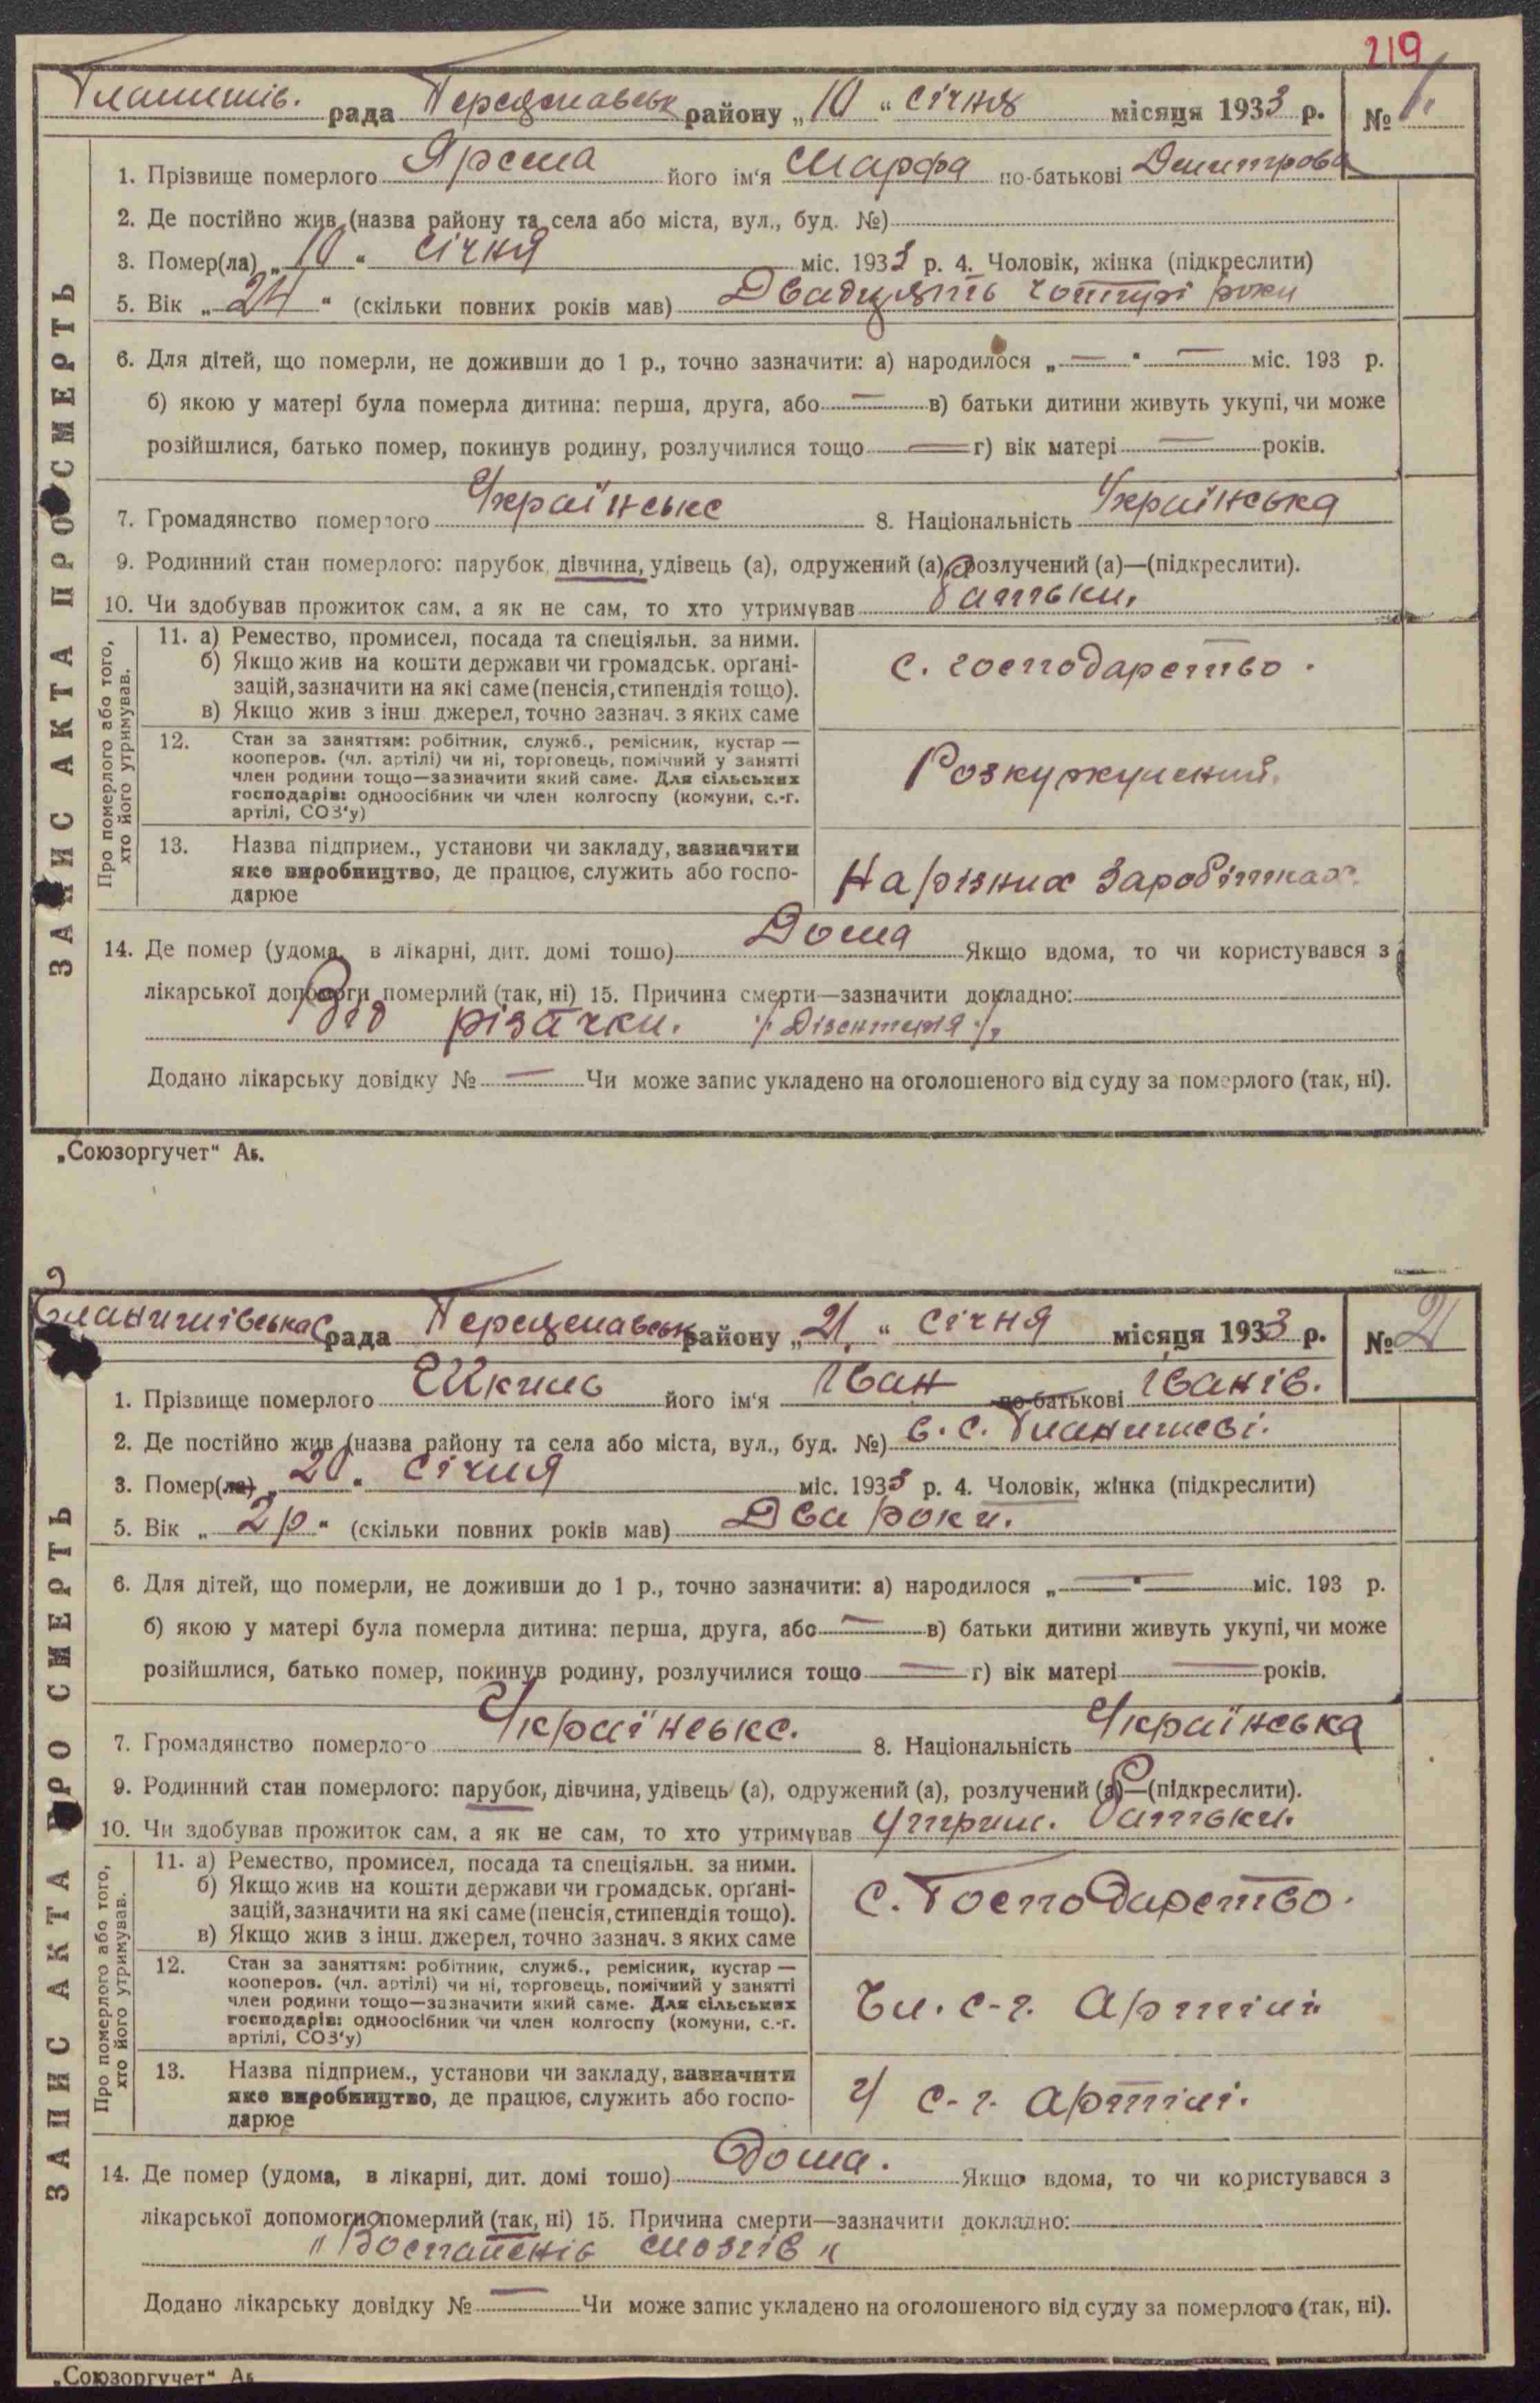 219
рада Переяславськ району „10“ січня місяця 1933 р. № 1.
ЗАПИС АКТА ПРО СМЕРТЬ
1. Прізвище померлого Ярема його ім'я Марфа по-батькові Дмитрова
2. Де постійно жив (назва району та села або міста, вул., буд. №)
3. Помер(ла) „10“ січня міс. 1933 р. 4. Чоловік, жінка (підкреслити)
5. Вік „24“ (скільки повних років мав) Двадцять чотирі роки
6. Для дітей, що померли, не доживши до 1 р., точно зазначити: а) народилося „—“ — міс. 193 р.
б) якою у матері була померла дитина: перша, друга, або — в) батьки дитини живуть укупі, чи може
розійшлися, батько помер, покинув родину, розлучилися тощо — г) вік матері — років.
7. Громадянство померлого Українське 8. Національність Українська
9. Родинний стан померлого: парубок, дівчина, удівець (а), одружений (а), розлучений (а)—(підкреслити).
10. Чи здобував прожиток сам, а як не сам, то хто утримував батьки.
Про померлого або того, хто його утримував.
11. а) Ремество, промисел, посада та спеціяльн. за ними.
б) Якщо жив на кошти держави чи громадськ. органі-
зацій, зазначити на які саме (пенсія, стипендія тощо).
в) Якщо жив з інш джерел, точно зазнач. з яких саме
с. господарство.
12. Стан за заняттям: робітник, служб., ремісник, кустар —
кооперов. (чл. артілі) чи ні, торговець, помічний у занятті
член родини тощо—зазначити який саме. Для сільських
господарів: одноосібник чи член колгоспу (комуни, с.-г.
артілі, СОЗ'у)
Розкуркулений.
13. Назва підприєм., установи чи закладу, зазначити
яке виробництво, де працює, служить або госпо-
дарює
На різних заробітках.
14. Де помер (удома, в лікарні, дит. домі тощо) Дома Якщо вдома, то чи користувався з
лікарської допомоги померлий (так, ні) 15. Причина смерти—зазначити докладно:
Від різачки. /. Дізентерія ./.
Додано лікарську довідку № — Чи може запис укладено на оголошеного від суду за померлого (так, ні).
„Союзоргучет“ Аб.
рада Переяславськ району „21.“ січня місяця 1933 р. № 2
ЗАПИС АКТА ПРО СМЕРТЬ
1. Прізвище померлого його ім'я Іван по-батькові Іванів.
2. Де постійно жив (назва району та села або міста, вул., буд. №) в. с.
3. Помер(ла) „20“ січня міс. 1933 р. 4. Чоловік, жінка (підкреслити)
5. Вік „2 р.“ (скільки повних років мав) Два роки.
6. Для дітей, що померли, не доживши до 1 р., точно зазначити: а) народилося „—“ — міс. 193 р.
б) якою у матері була померла дитина: перша, друга, або — в) батьки дитини живуть укупі, чи може
розійшлися, батько помер, покинув родину, розлучилися тощо — г) вік матері — років.
7. Громадянство померлого Українське. 8. Національність Українська
9. Родинний стан померлого: парубок, дівчина, удівець (а), одружений (а), розлучений (а)—(підкреслити).
10. Чи здобував прожиток сам, а як не сам, то хто утримував Утрим. батьки.
Про померлого або того, хто його утримував.
11. а) Ремество, промисел, посада та спеціяльн. за ними.
б) Якщо жив на кошти держави чи громадськ. органі-
зацій, зазначити на які саме (пенсія, стипендія тощо).
в) Якщо жив з інш. джерел, точно зазнач. з яких саме
С. Господарство.
12. Стан за заняттям: робітник, служб., ремісник, кустар —
кооперов. (чл. артілі) чи ні, торговець, помічний у занятті
член родини тощо—зазначити який саме. Для сільських
господарів: одноосібник чи член колгоспу (комуни, с.-г.
артілі, СОЗ'у)
Чл. с-г. Артілі
13. Назва підприєм., установи чи закладу, зазначити
яке виробництво, де працює, служить або госпо-
дарює
У с-г. Артілі.
14. Де помер (удома, в лікарні, дит. домі тощо) Дома. Якщо вдома, то чи користувався з
лікарської допомоги померлий (так, ні) 15. Причина смерти—зазначити докладно:
„ мозгів “
Додано лікарську довідку № — Чи може запис укладено на оголошеного від суду за померлого (так, ні).
„Союзоргучет“ Аб